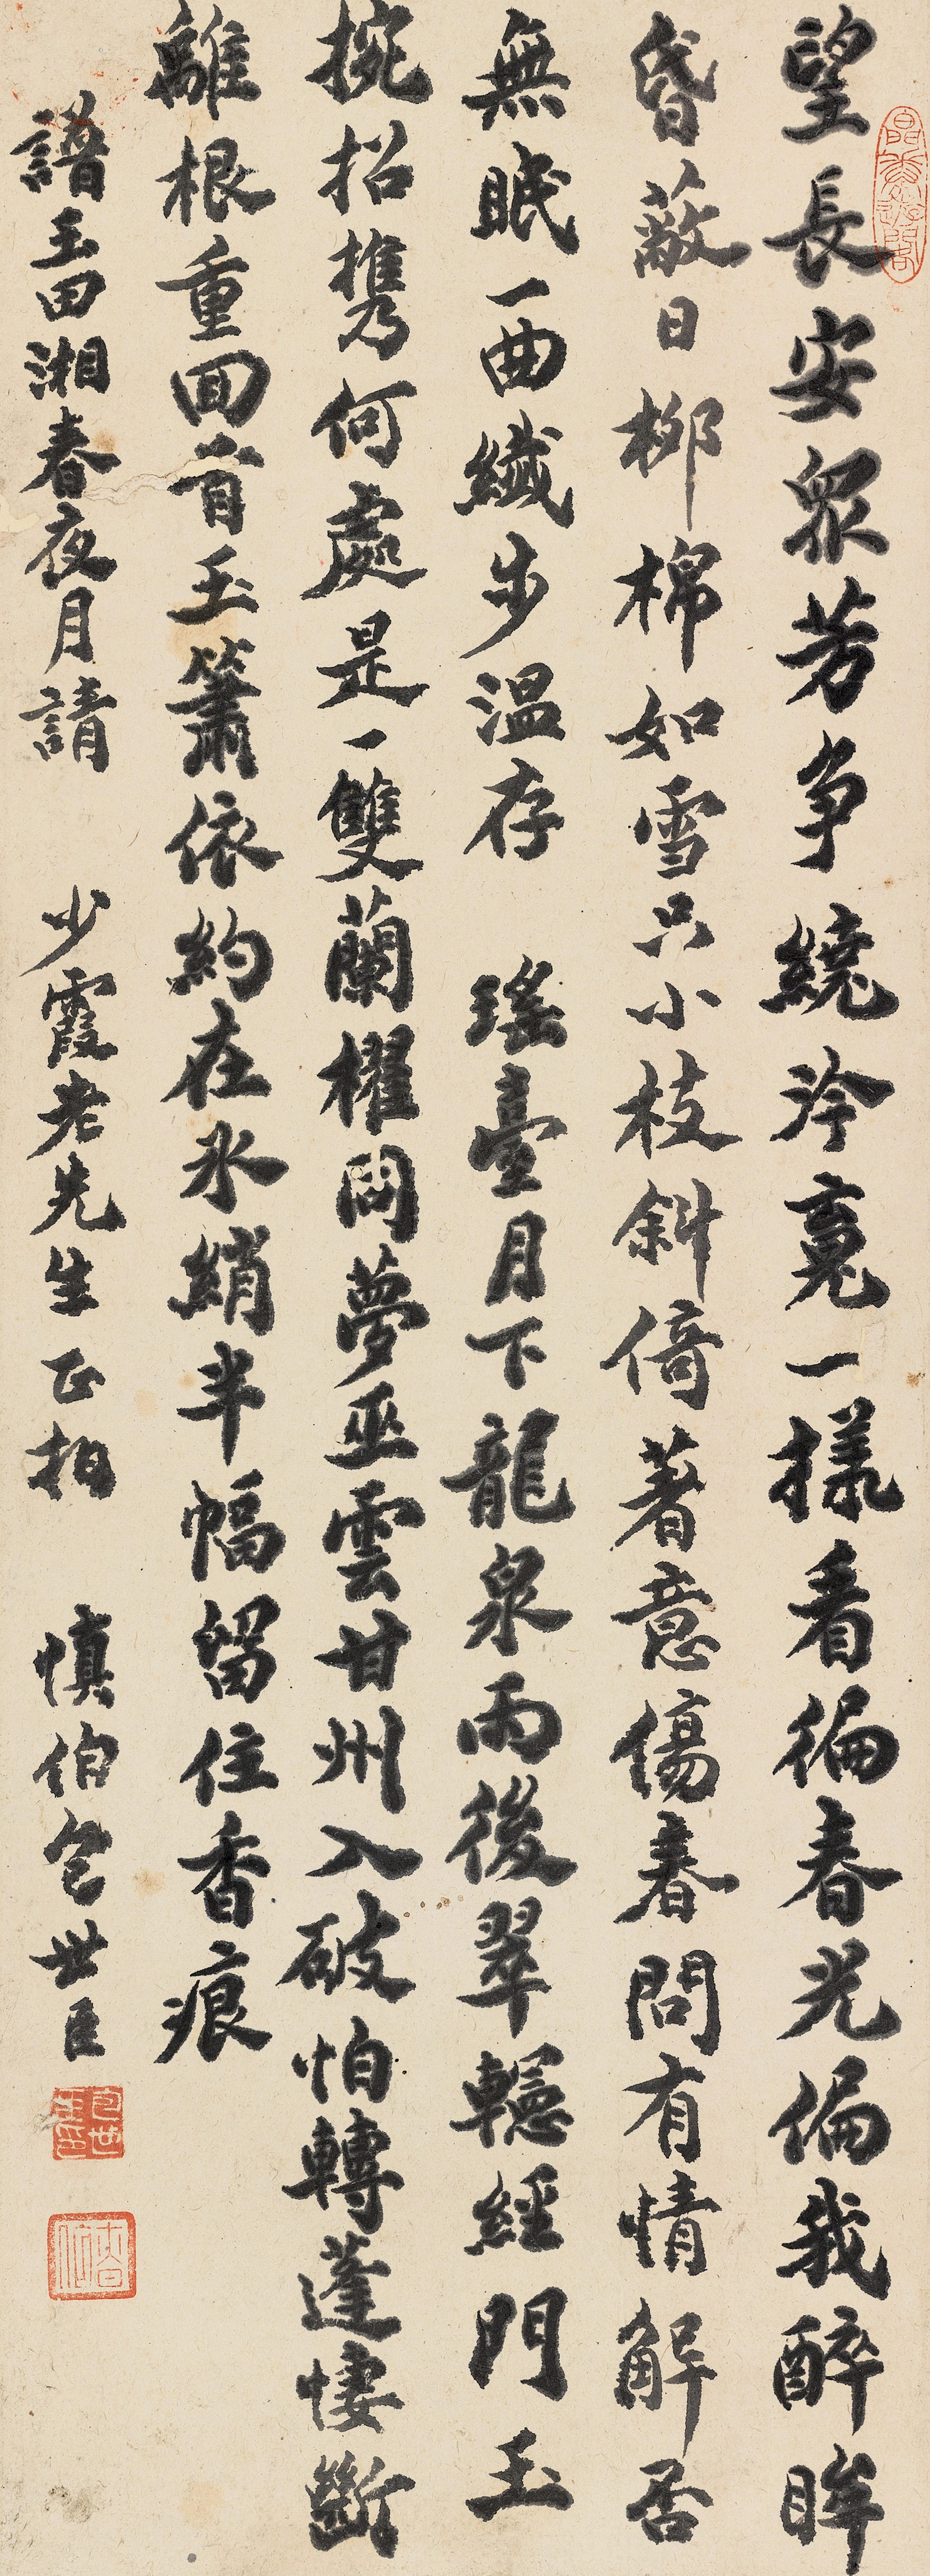 望長安眾芳爭繞泠裛一樣看徧春光偏我醉眸
昏蔽日柳棉如雪只小枝斜倚著意傷春問有情解否
無眠一曲纖步溫存 瑤臺月下龍泉雨後翠轣經門玉
捥招攜何處是一雙蘭櫂問夢巫雲甘州入破怕轉蓬悽斷
離根重回首玉簫依約在氷綃半幅留住香痕
譜玉田湘春夜月請 少霞老先生正拍 慎伯包世臣